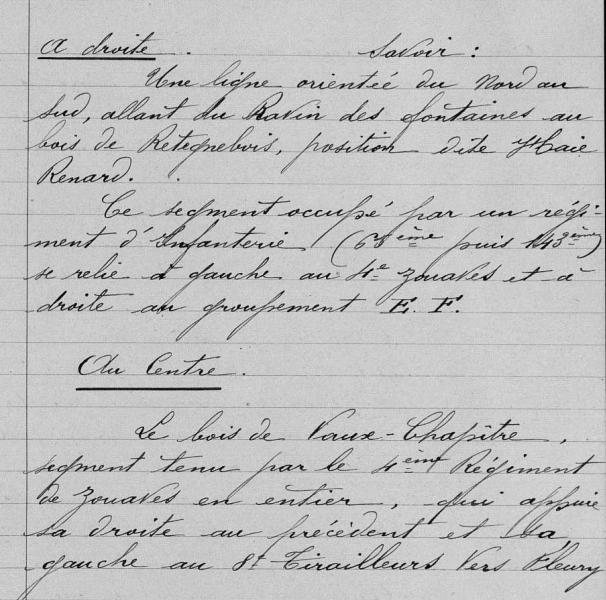 A droite . Savoir :
Une ligne orientée du Nord au
sud, allant du Ravin des fontaines au
bois de Retegnebois, position dite Haie
Renard.
Ce segment occupé par un régi-
ment d'Infanterie ( puis 143ème)
se relie à gauche au 4e zouaves et à
droite au groupement E. F.
Au Centre .
Le bois de Vaux-Chapître,
segment tenu par le 4ème Régiment
de zouaves en entier, qui appuie
sa droite au précédent et sa
gauche au 8t Tirailleurs vers Fleury